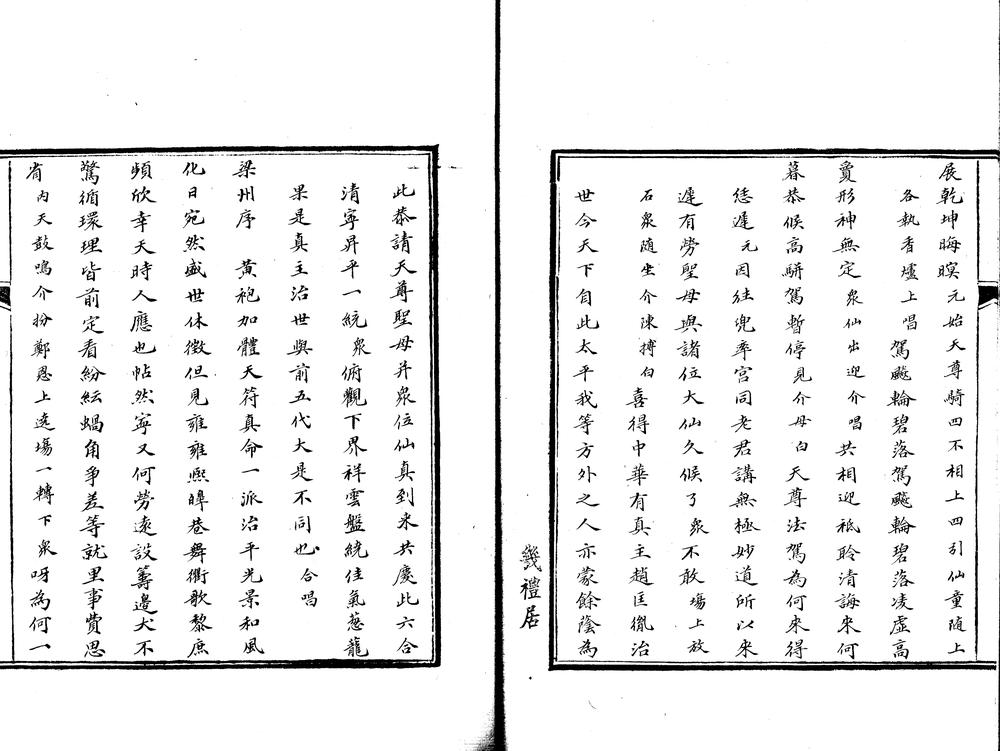 展乾坤晦暝元始天尊騎四不相上四引仙童随上
各執香爐上唱駕颷輪碧落駕颷輪碧落凌虛高
形神無定衆仙出迎介唱共相迎祗聆清誨來何
暮恭候高駢駕暫停見介母白天尊法駕為何來得
恁遲元因往兜率宮同老君講無極妙道所以來
遲有勞聖母與諸位大仙久候了衆不敢場上放
石衆随坐介陳摶白喜得中華有真主趙匡胤治
世今天下自此太平我等方外之人亦蒙餘蔭為
幾禮居
此恭請天尊聖母并衆位仙真到來共慶此六合
清寧昇平一統衆俯觀下界祥雲盤繞佳氣葱蘢
果是真主治世與前五代大是不同也合唱
梁州序 黃袍加體天符真命一派治平光景和風
化日宛然盛世休徵但見雍雍熙皞巷舞衢歌黎庶
頻欣幸天時人應也帖然寧又何勞遠設籌邊犬不
驚循環理皆前定看紛紜蝸角爭差等就里事費思
省內天鼓鳴介扮鄭恩上遶場一轉下衆呀為何一